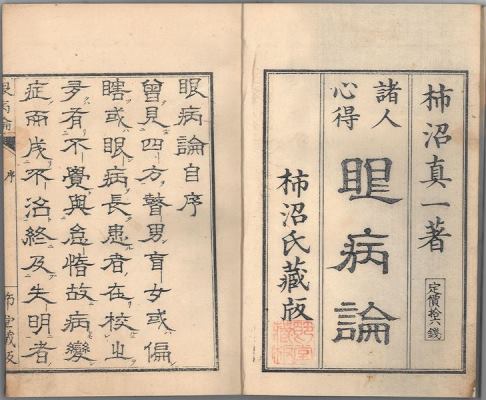 柿沼真一著
定價拾六錢
諸人
心得
眼病論
柿沼氏藏版
眼病論自序
曾見四方瞽男盲女或偏
瞎或眼病長患者在校出
矛有不覺與怠惰故病變
症而成不治終及失明者
序